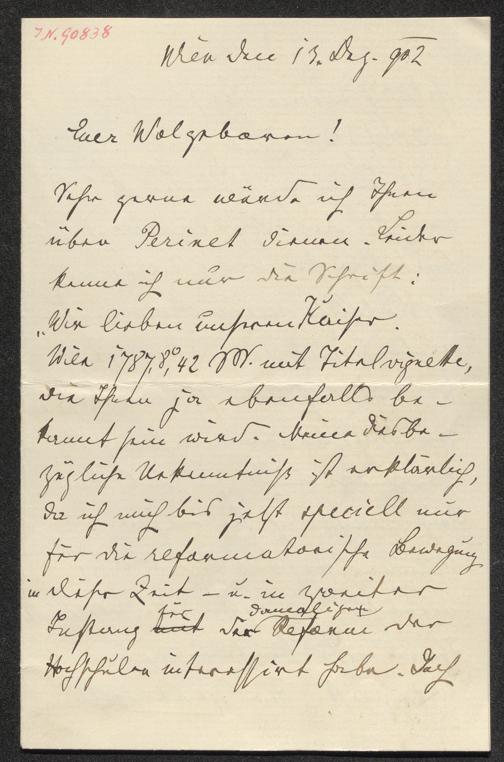 I.N. 90838
Wien den 13. Dez. 902
Euer Wolgeboren!
Sehr gerne würde ich Ihnen
über Perinet dienen. Leider
kenne ich nur die Schrift:
„Wir lieben unseren Kaiser.
Wien 1787, 8°, 42 SS. mit Titelvignette,
die Ihnen ja ebenfalls be-
kannt sein wird. Meine diesbe-
zügliche Unkenntniß ist erklärlich,
da ich mich bis jetzt speciell nur
für die reformatorische Bewegung
in dieser Zeit – u. in zweiter
Instanz für die damaligen Reform der
Hochschulen interessirt habe. Doch